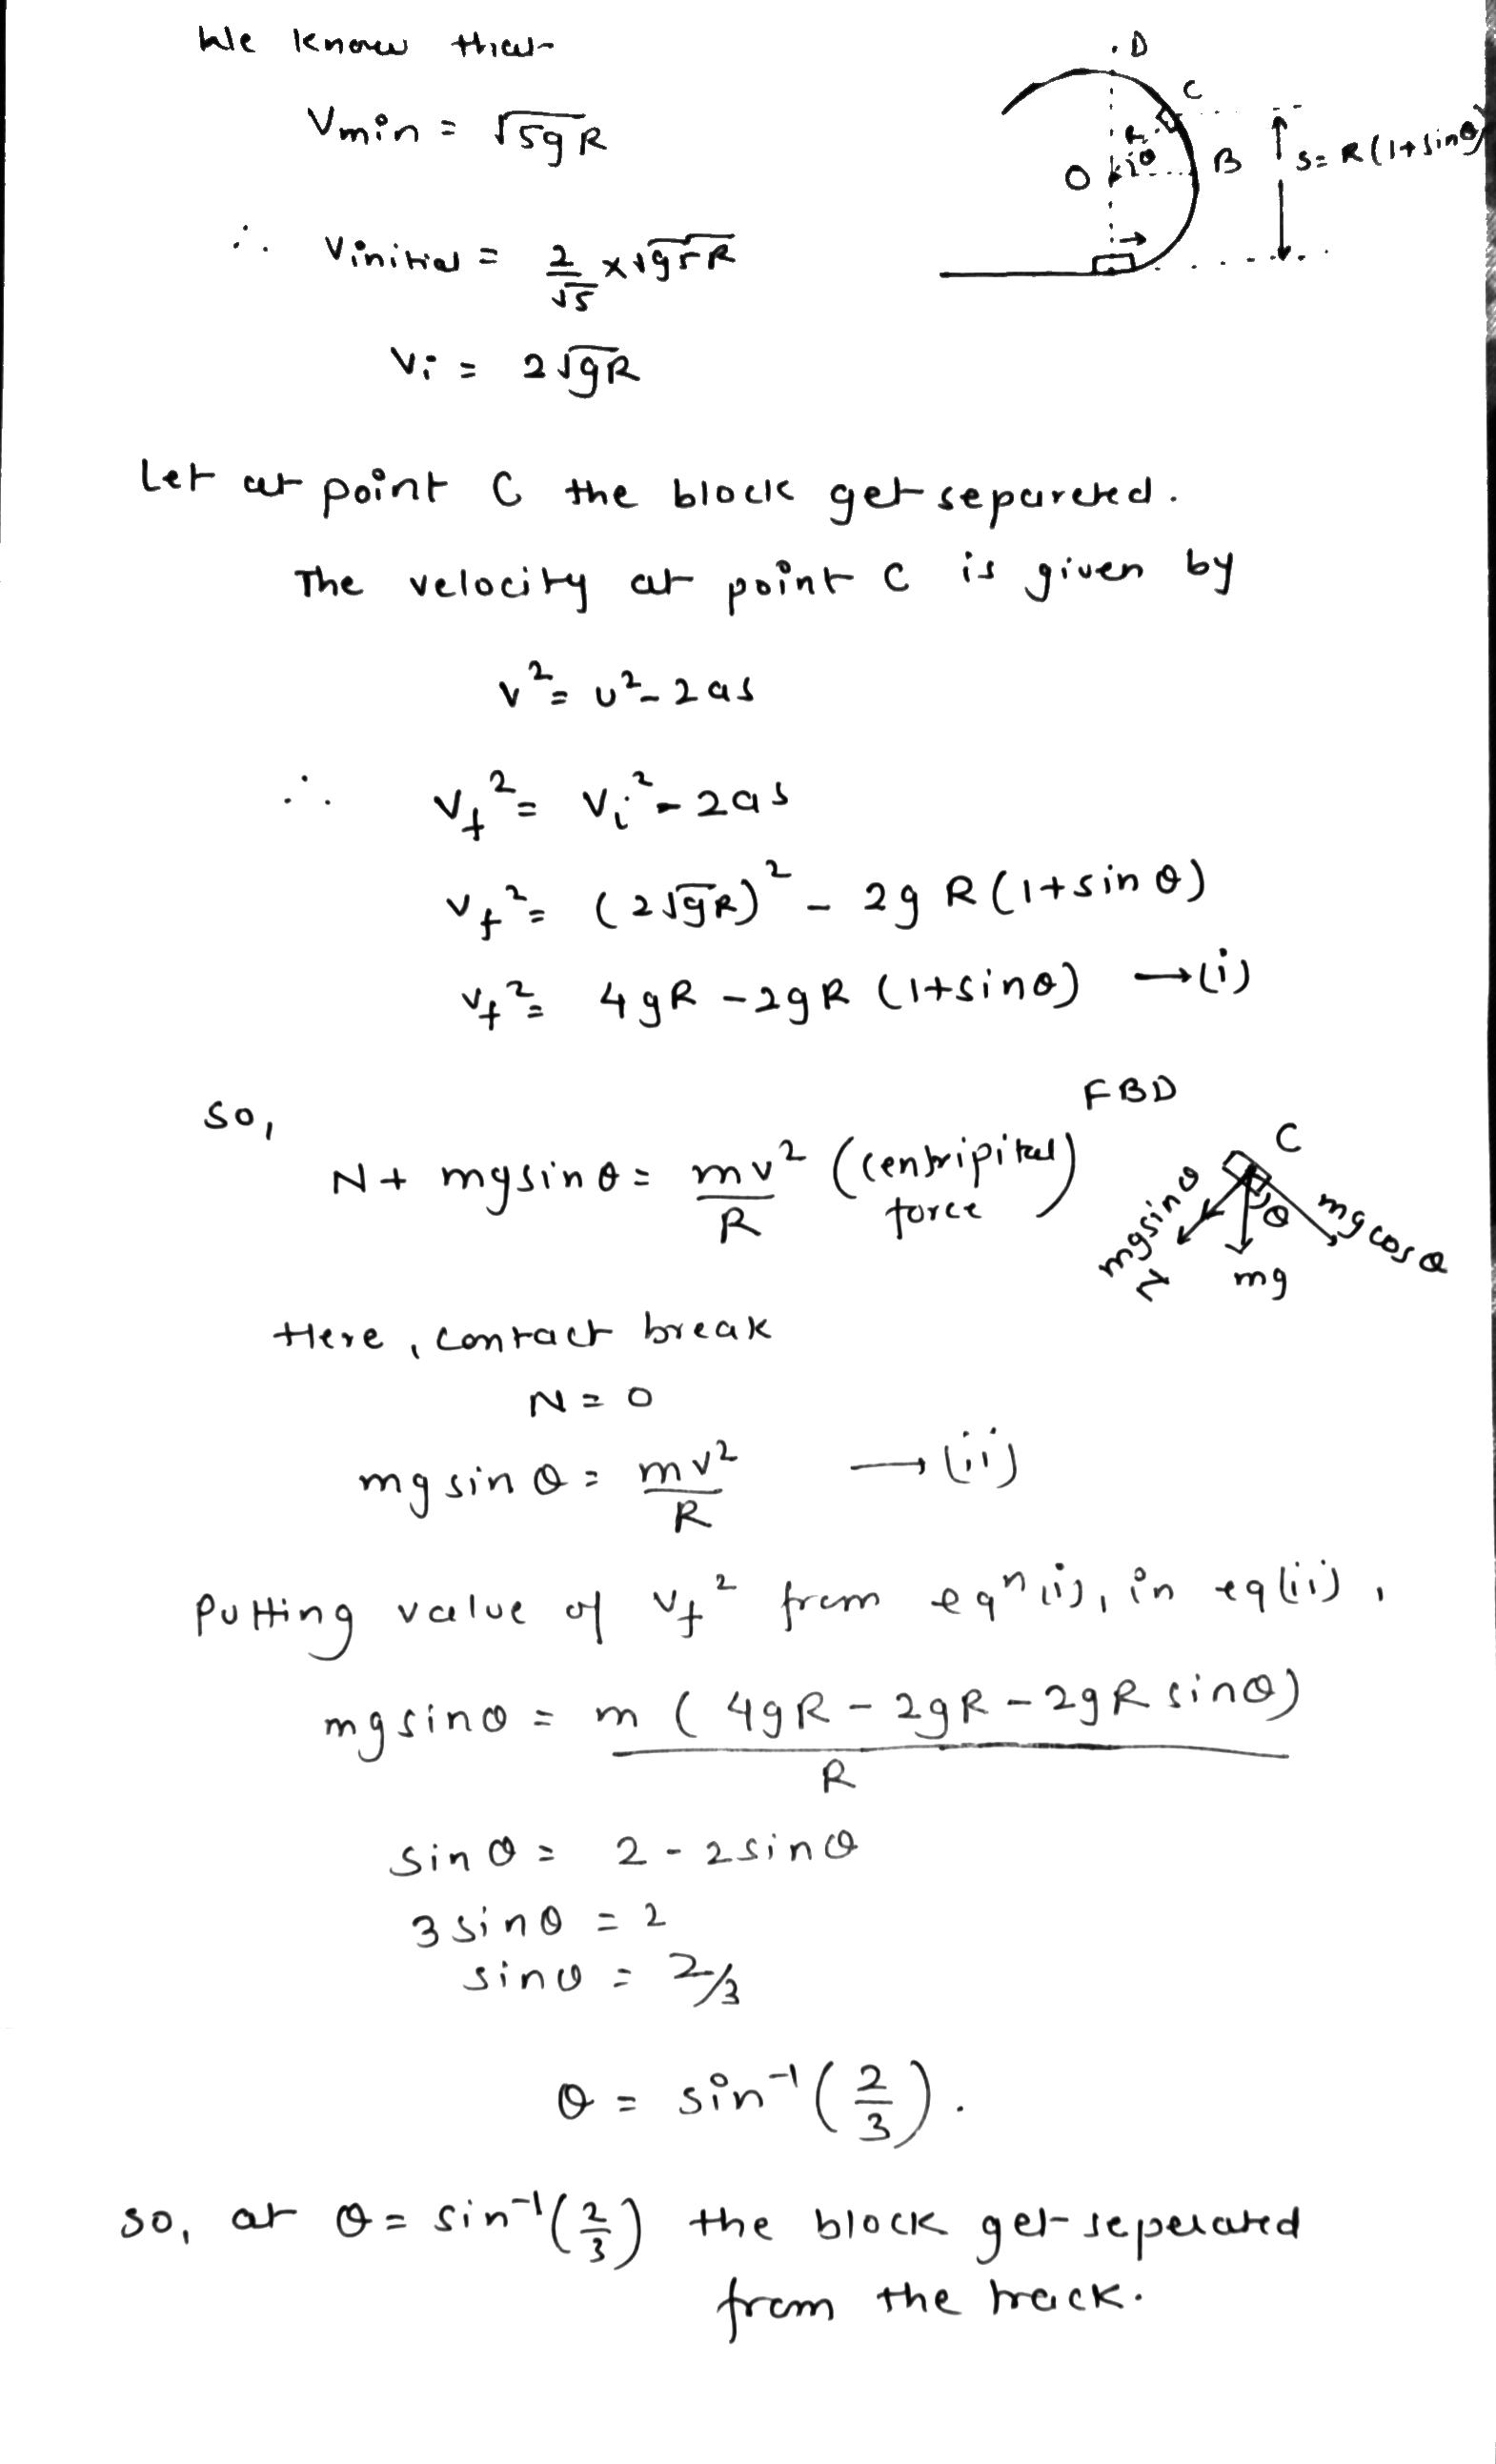 We know that
Vmin = √5gR
∴ Vinitial = 2/√5 × √g5R
Vi = 2√gR
D
C
R
O θ
B
S = R(1+sinθ)
Let at point C the block get separeted.
The velocity at point C is given by
v² = u² - 2as
∴ Vf² = Vi² - 2as
Vf² = (2√gR)² - 2gR(1+sinθ)
Vf² = 4gR - 2gR (1+sinθ) →(i)
So,
N + mgsinθ = mv²/R (centripital force)
FBD
C
mgsinθ
N
θ
mg
mgcosθ
Here, contact break
N = 0
mgsinθ = mv²/R →(ii)
Putting value of Vf² from eqⁿ(i), in eq(ii),
mgsinθ = m(4gR - 2gR - 2gRsinθ)/R
sinθ = 2 - 2sinθ
3sinθ = 2
sinθ = 2/3
θ = sin⁻¹(2/3).
So, at θ = sin⁻¹(2/3) the block get seperated
from the track.